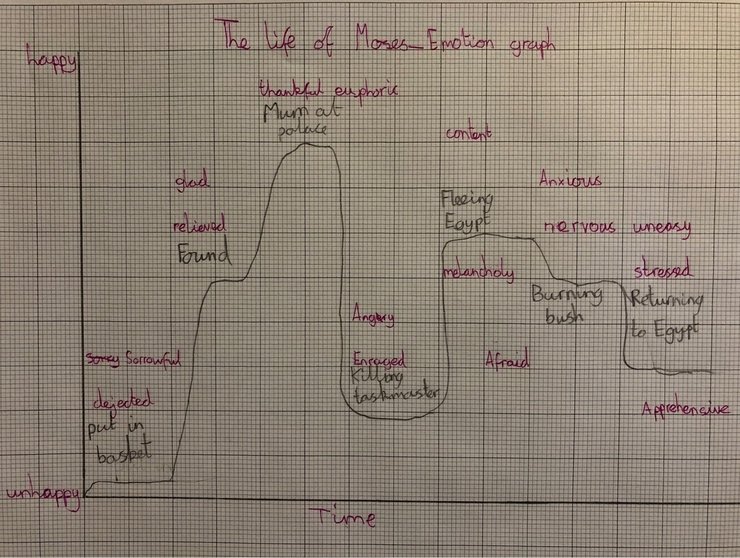 The life of Moses_Emotion graph
happy
thankful euphoric
Mum at
palace
content
glad
Anxious
Fleeing
Egypt
relieved
Found
nervous uneasy
melancholy
stressed
Burning
bush
Returning
to Egypt
Angry
Sorrowful
Enraged
Killing
taskmaster
Afraid
dejected
put in
basket
Apprehensive
unhappy
Time